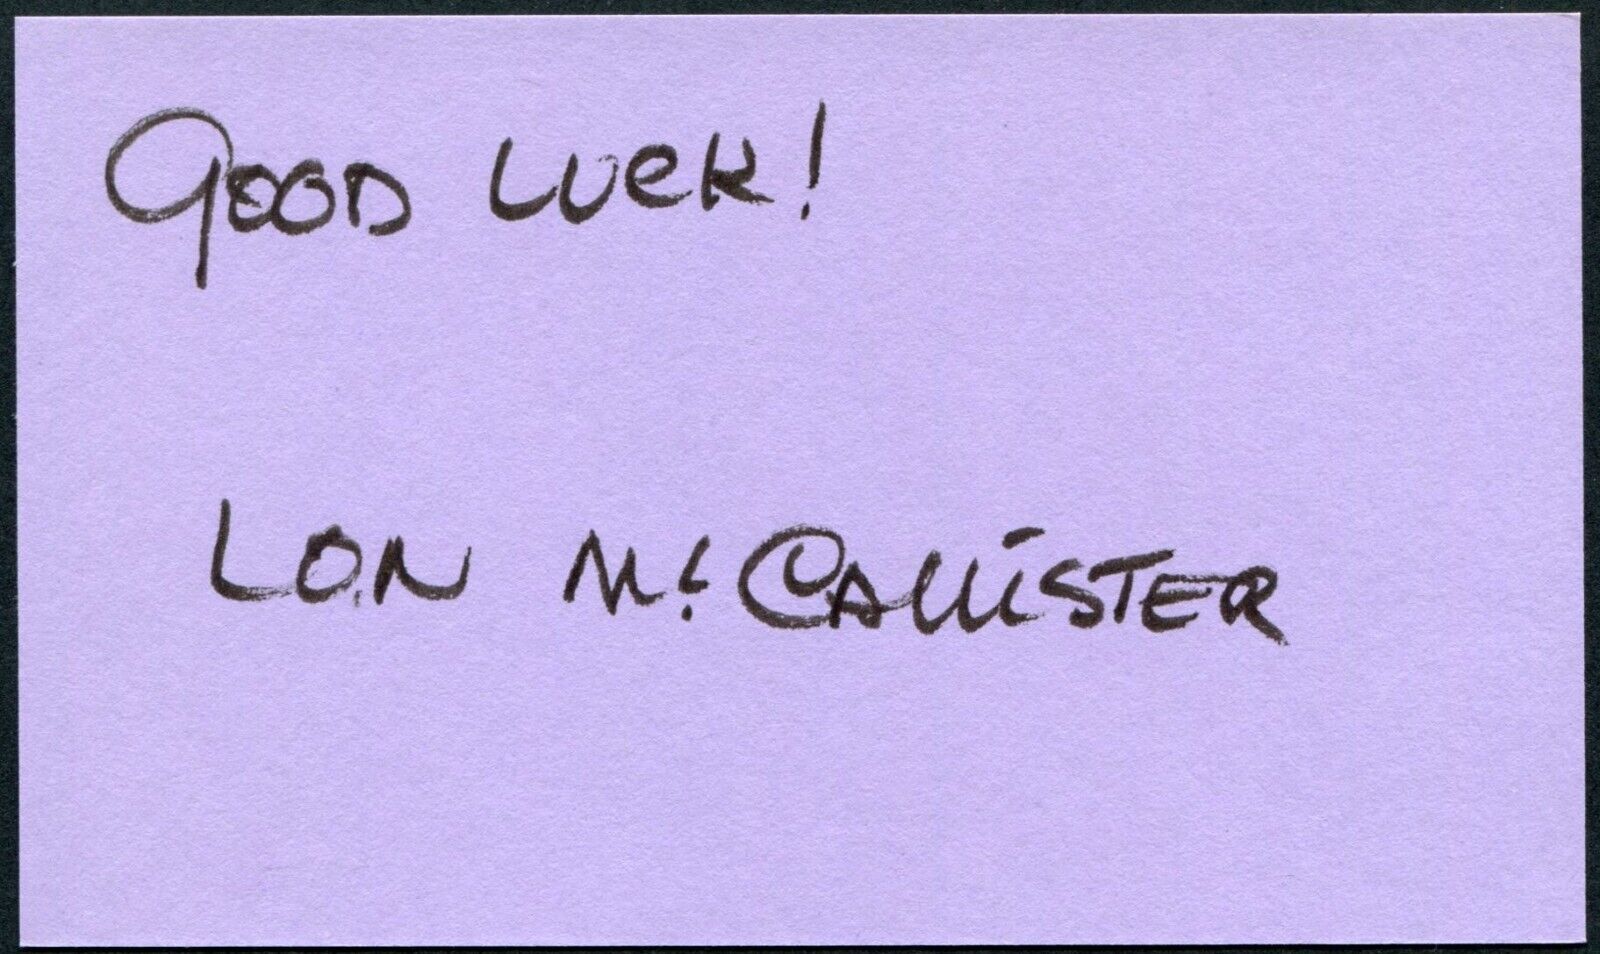 GOOD LUCK!
LON McCALLISTER